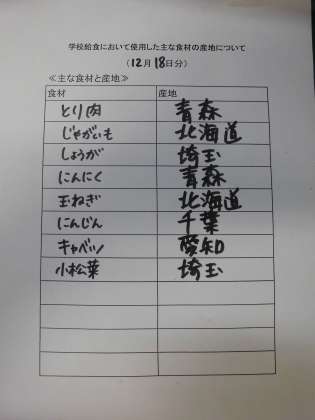 学校給食において使用した主な食材の産地について
（12月18日分）
≪主な食材と産地≫
食材 産地
とり肉 青森
じゃがいも 北海道
しょうが 埼玉
にんにく 青森
玉ねぎ 北海道
にんじん 千葉
キャベツ 愛知
小松菜 埼玉